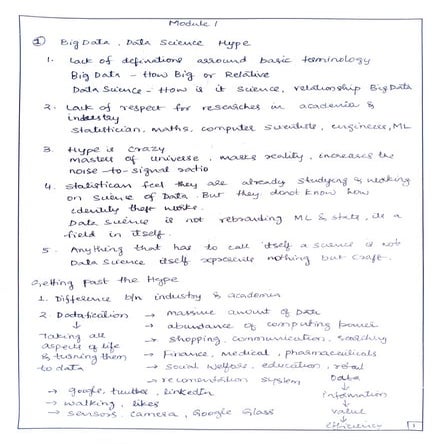 Module 1
① Big Data, Data Science Hype
1. Lack of definations arround basic terminology
Big Data - How Big or Relative
Data Science - How is it science, relationship Big Data
2. Lack of respect for researches in academia &
industry
Statistician, maths, computer scientists, engineers, ML
3. Hype is crazy
Masters of universe, masks reality, increases the
noise-to-signal ratio
4. Statistican feel they are already studying & working
on Science of Data. But they donot know how
identity theft works
Data Science is not rebranding ML & stats, its a
field in itself.
5. Anything that has to call itself a science is not
Data Science itself represents nothing but craft.
Getting Past the Hype
1. Difference b/n industry & academia
2. Datafication → massive amount of Data
↓ → abundance of computing power
Taking all → shopping, communication, searching
aspects of life → Finance, medical, pharmaceuticals
& turning them → social welfare, education, retail
to data → recomendation system Data
↓
→ google, twitter, linkedin information
→ walking, likes ↓
→ sensors, camera, Google Glass value
↓
efficiency
1